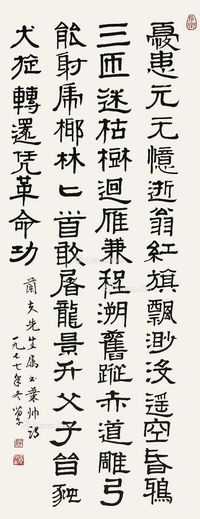 憂患元元憶逝翁紅旗飄渺没遥空昏鴉
三匝迷枯樹迴雁兼程溯舊蹤赤道雕弓
能射虎椰林匕首敢屠龍景升父子皆豚
犬旋轉還凭革命功
蘭先生属书葉帅诗
一九七七年冬